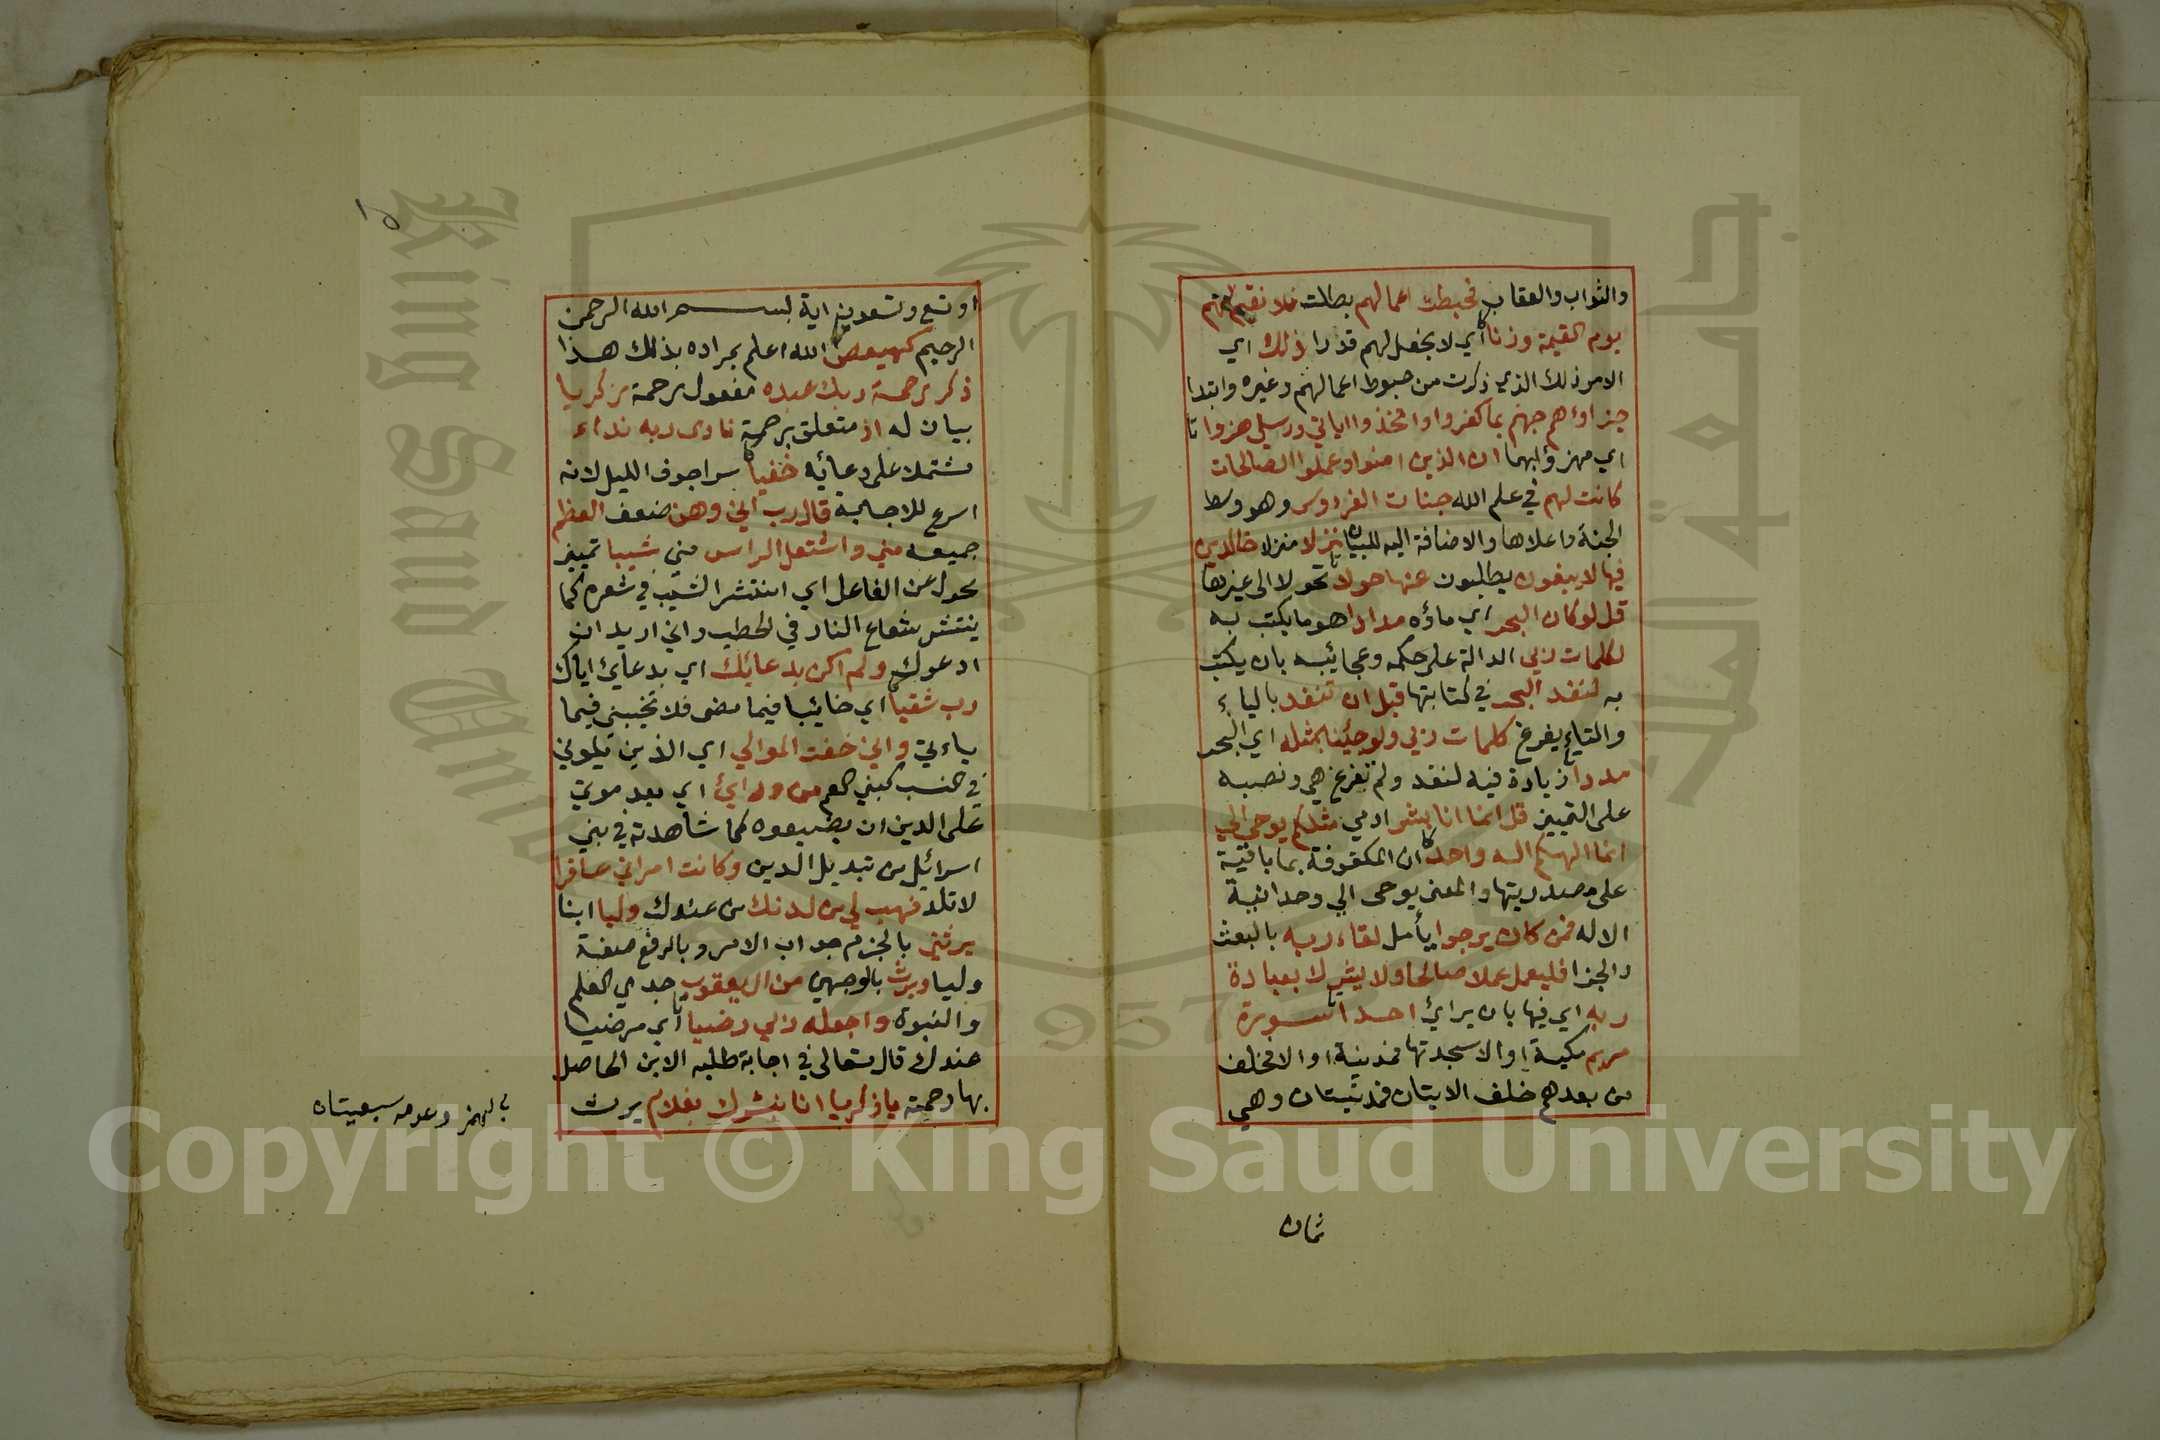 والثواب والعقاب فحبطت اعمالهم بطلت فلا نقيم لهم
يوم القيمة وزنا اي لا نجعل لهم قدرا ذلك اي
الامر ذلك الذي ذكرت من حبوط اعمالهم وغيره وابتدا
جزاؤهم جهنم بما كفروا واتخذوا اياتي ورسلي هزوا
اي مهزوا بهما ان الذين امنوا وعملوا الصالحات
كانت لهم في علم الله جنات الفردوس وهو وسط
الجنة واعلاها والاضافة اليه للبيان نزلا منزلا خالدين
فيها لا يبغون يطلبون عنها حولا تحولا الى غيرها
قل لو كان البحر اي ماؤه مدادا هو ما يكتب به
لكلمات ربي الدالة على حكمه وعجائبه بان يكتب
به لنفد البحر في كتابتها قبل ان تنفد بالياء
والتاء يفرغ كلمات ربي ولو جئنا بمثله اي البحر
مددا زيادة فيه لنفد ولم تفرغ هي ونصبه
على التمييز قل انما انا بشر ادمي مثلكم يوحى الي
انما الهكم اله واحد ان المكفوفة بما باقية
على مصدريتها والمعنى يوحى الي وحدانية
الاله فمن كان يرجوا يأمل لقاء ربه بالبعث
والجزا فليعمل عملا صالحا ولا يشرك بعبادة
ربه اي فيها بان يرائ احدا سورة
مريم مكية او الا سجدتها فمدنية او الا فخلف
من بعدهم خلف الايتان فمدنيتان وهي
ثمان
١٥
او تسع وتسعون اية بسم الله الرحمن
الرحيم كهيعص الله اعلم بمراده بذلك هذا
ذكر رحمة ربك عبده مفعول رحمة زكريا
بيان له اذ متعلق برحمة نادى ربه نداء
مشتملا على دعائه خفيا سرا جوف الليل لانه
اسرع للاجابة قال رب اني وهن ضعف العظم
جميعه مني واشتعل الراس مني شيبا تمييز
محول عن الفاعل اي انتشر الشيب في شعره كما
ينتشر شعاع النار في الحطب واني اريد ان
ادعوك ولم اكن بدعائك اي بدعائ اياك
رب شقيا اي خائبا فيما مضى فلا تخيبني فيما
ياءتي واني خفت الموالي اي الذين يلوني
في النسب كبني العم من ورائ اي بعد موتي
على الدين ان يضيعوه كما شاهدته في بني
اسرائيل من تبديل الدين وكانت امراتي عاقرا
لا تلد فهب لي من لدنك من عندك وليا ابنا
يرثني بالجزم جواب الامر وبالرفع صفة
وليا ويرث بالوجهين من ال يعقوب جدي العلم
والنبوة واجعله ربي رضيا اي مرضيا
عندك قال تعالى في اجابة طلبه الابن الحاصل
بها رحمته يا زكريا انا نبشرك بغلام يرث
بالهمز وعدمه سبعيتان
King Saud University
جامعة الملك سعود
1957
Copyright © King Saud University